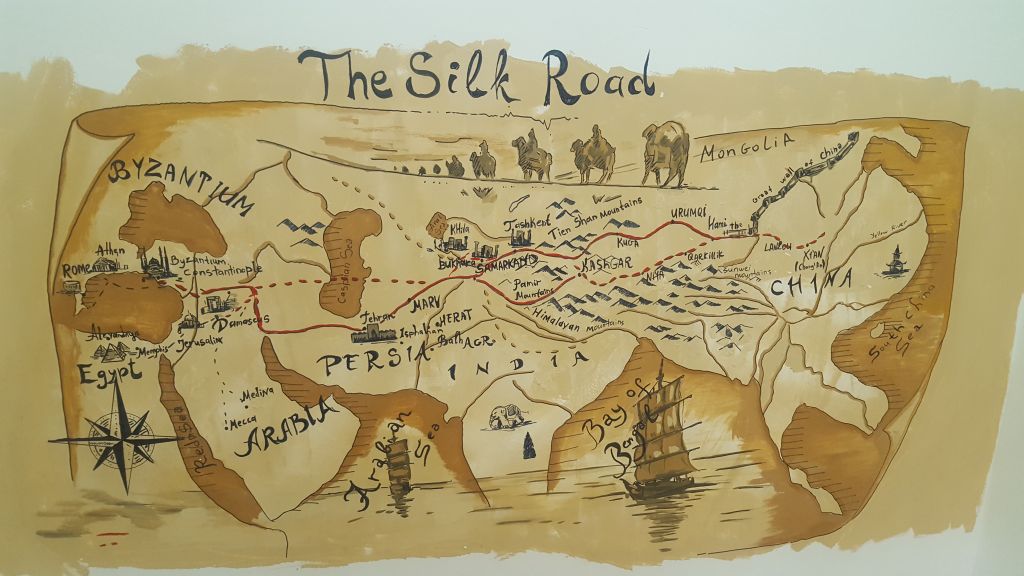 The Silk Road
MONGOLIA
Great wall of china
BYZANTIUM
Athan
ROME
Byzantium
Constantinople
Caspian Sea
Khiva
Bukhara
SAMARKAND
Tashkent
Tien Shan Mountains
URUMQI
Hami the
KUGA
KASHGAR
Qarkilik
LANZOU
XIAN
(Chang'an)
Yellow River
Sunwei
mountains
CHINA
Pamir
Mountains
Himalayan mountains
South China
Sea
Alexandria
Memphis
Egypt
Damascus
Jerusalim
Tehran
Isphahan
MARV
HERAT
Balh AGR
PERSIA
INDIA
Medina
Mecca
ARABIA
Red Sea
Arabian
Sea
Bay of
Bengal